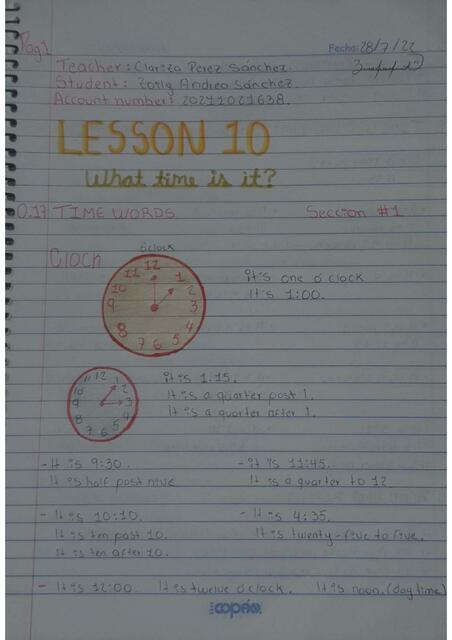 Pag 1
Fecha: 28/7/22
Teacher: Clariza Perez Sánchez.
Student: Zoily Andrea Sánchez.
Account number: 20211021638.
LESSON 10
What time is it?
0.17 TIME WORDS
Seccion #1
Clock
o'clock
12 1 2 3 4 5 6 7 8 9 10 11
it's one o'clock
It's 1:00.
12 1 2 3 4 5 6 7 8 9 10 11
it is 1:15.
It is a quarter post 1.
It is a quarter after 1.
- It is 9:30.
It is half post nive
- it is 11:45.
It is a quarter to 12
- It is 10:10.
It is ten past 10.
It is ten after 10.
- It is 4:35.
It is twenty-five to five.
- It is 12:00. It is twelve o'clock. It is noon. (day time)
copán